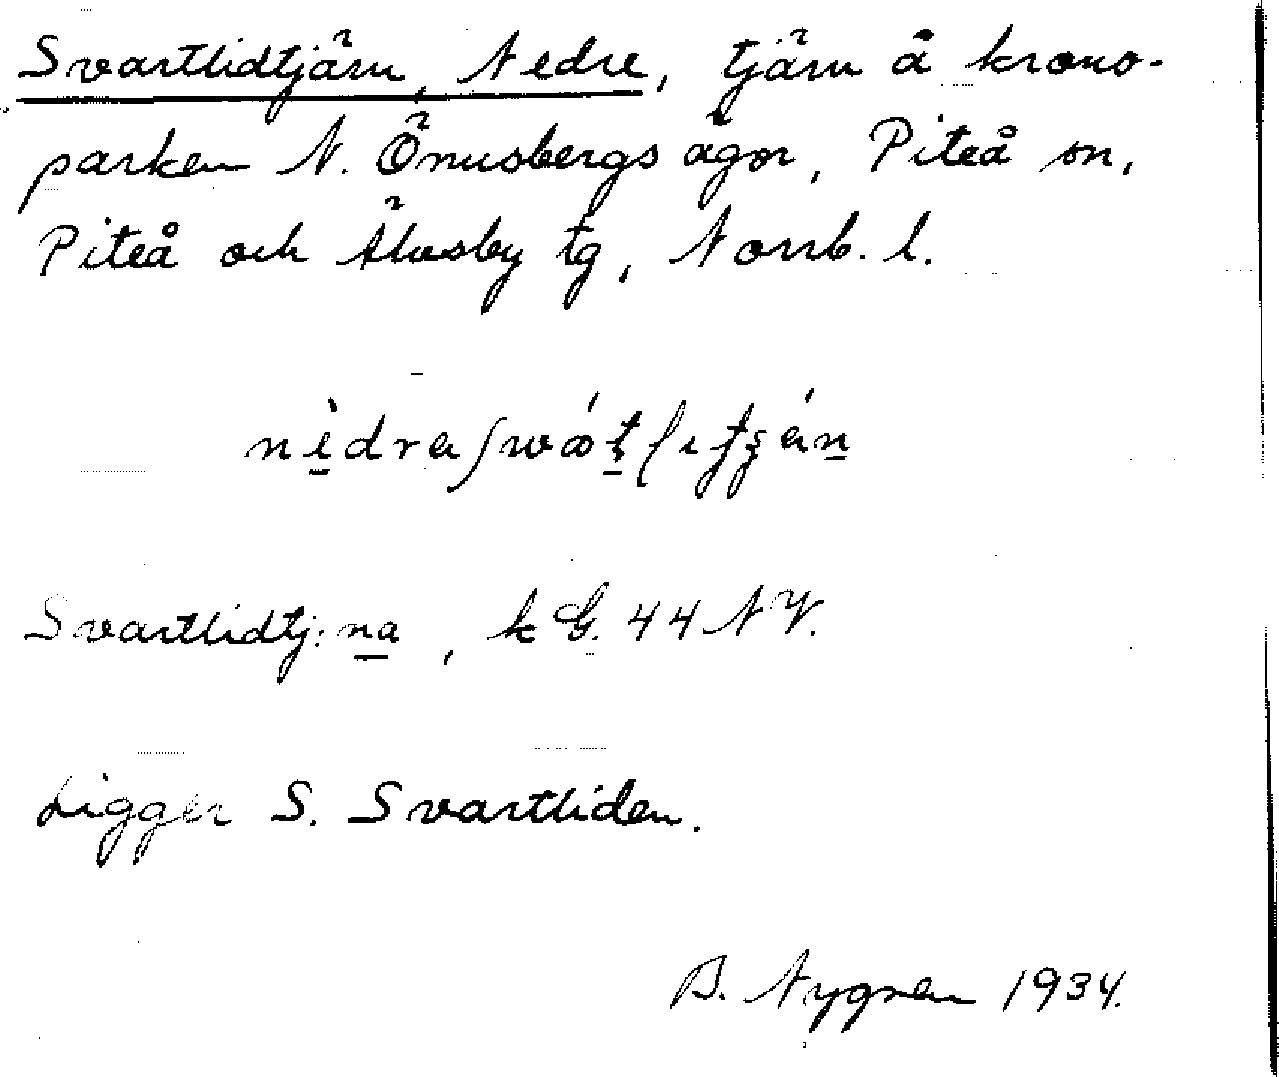 Svartlidtjärn, Nedre, tjärn å krono-
parken N. Önusbergs ägor, Piteå sn,
Piteå och Älvsby tg, Norrb. l.
Svartlidtj:na, k G. 44 NV.
Ligger S. Svartliden.
B. Nygren 1934.